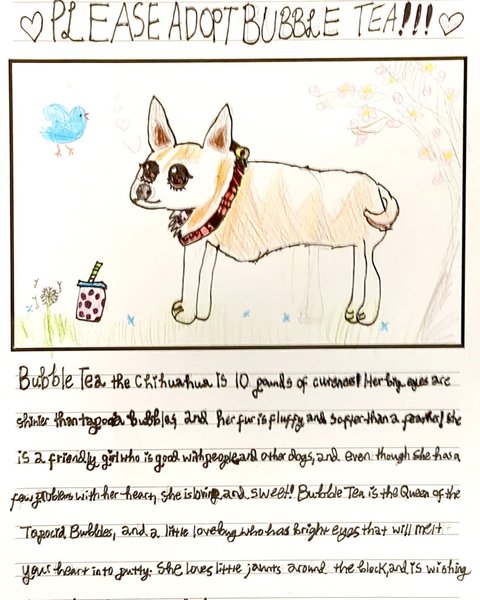 ♡PLEASE ADOPT BUBBLE TEA!!!♡
Bubble Tea the Chihuahua is 10 pounds of cuteness! Her big eyes are
shinier than tapioca bubbles and her fur is fluffy and softer than a feather! She
is a friendly girl who is good with people and other dogs, and even though she has a
few problems with her heart, she is loving and sweet! Bubble Tea is the Queen of the
Tapocia Bubbles, and a little lovebug who has bright eyes that will melt
your heart into putty. She loves little jaunts around the block, and is wishing